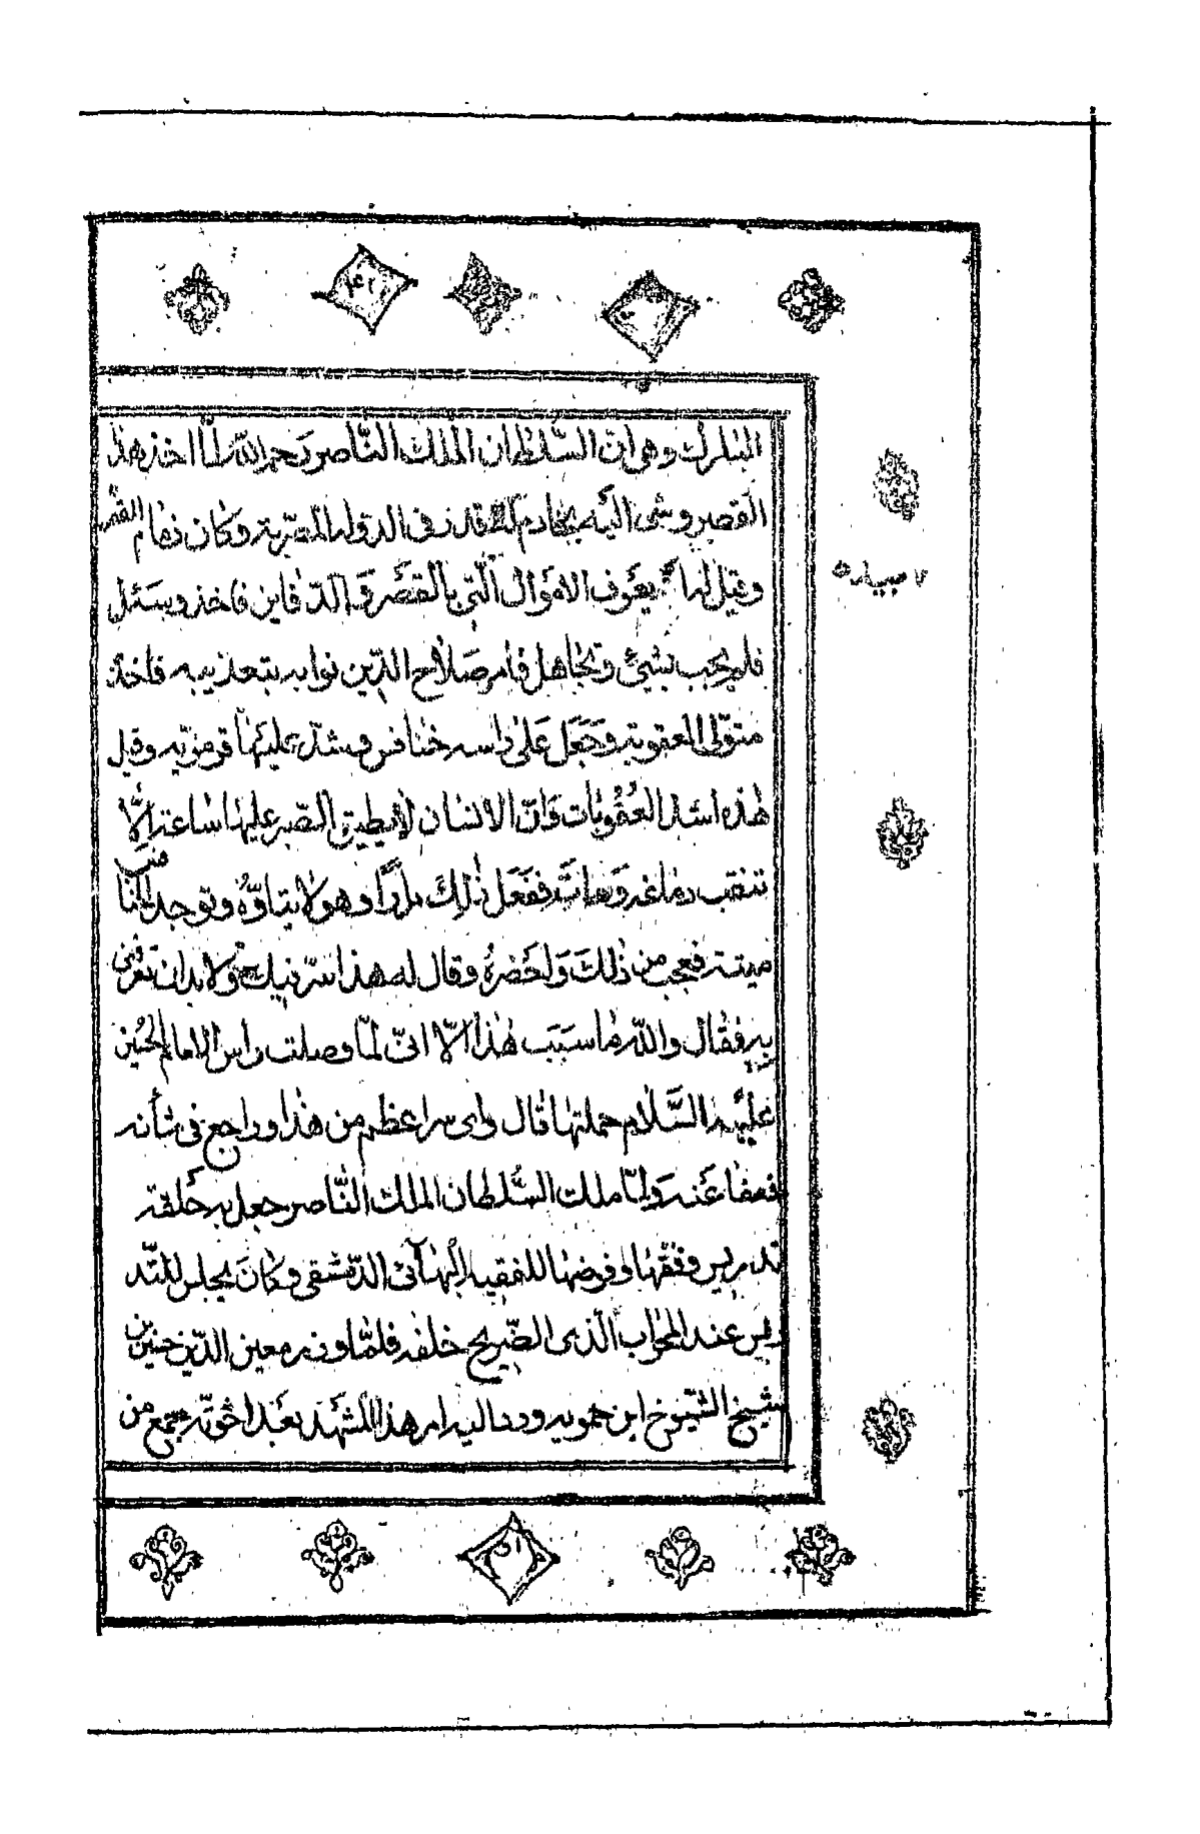 المبارك وهى انّ السّلطان الملك النّاصر رحمه اللّٰه لمّا اخذ هذا
القصر وشى اليه بخادم له قدر فى الدولة المصرية وكان زمام القصر
وقيل له انّه يعرف الاموال الّتى بالقصر والدّفاين فاخذ ويسئل
فلم يجب بشيئ وتجاهل فامر صلاح الدّين نوابه بتعذيبه فاخذه
متولّى العقوبة وجعل على راسه خنافس وشدّ عليها قرمزية وقيل
هٰذه اشد العقوبات فانّ الانسان لا يطيق الصّبر عليها ساعة الّا
تنقب دماغه ومات ففعل ذلك مرارًا وهو لا يتاوّه وتوجد الخنافس
ميتة فعجب من ذلك واحضره وقال له هذا سرّ فيك ولا بد ان تعرّفنى
به فقال واللّٰه ما سبب هٰذا الّا انّى لمّا وصلت راس الامام الحسين
عليه السّلام حملتها قال واى سر اعظم من هٰذا وراجع فى شأنه
فعفا عنه ولمّا ملك السّلطان الملك النّاصر جعل به حلقة
تدريس وفقها وفوضها للفقيه البهائى الدّمشقى وكان يجلس للتّد
ريس عند المحراب الّذى الضّريح خلفه فلمّا وزر معين الدّين حسين بن
شيخ الشّيوخ ابن حمويه وردّ اليه امر هذا المشهد بعد اخوته جمع من